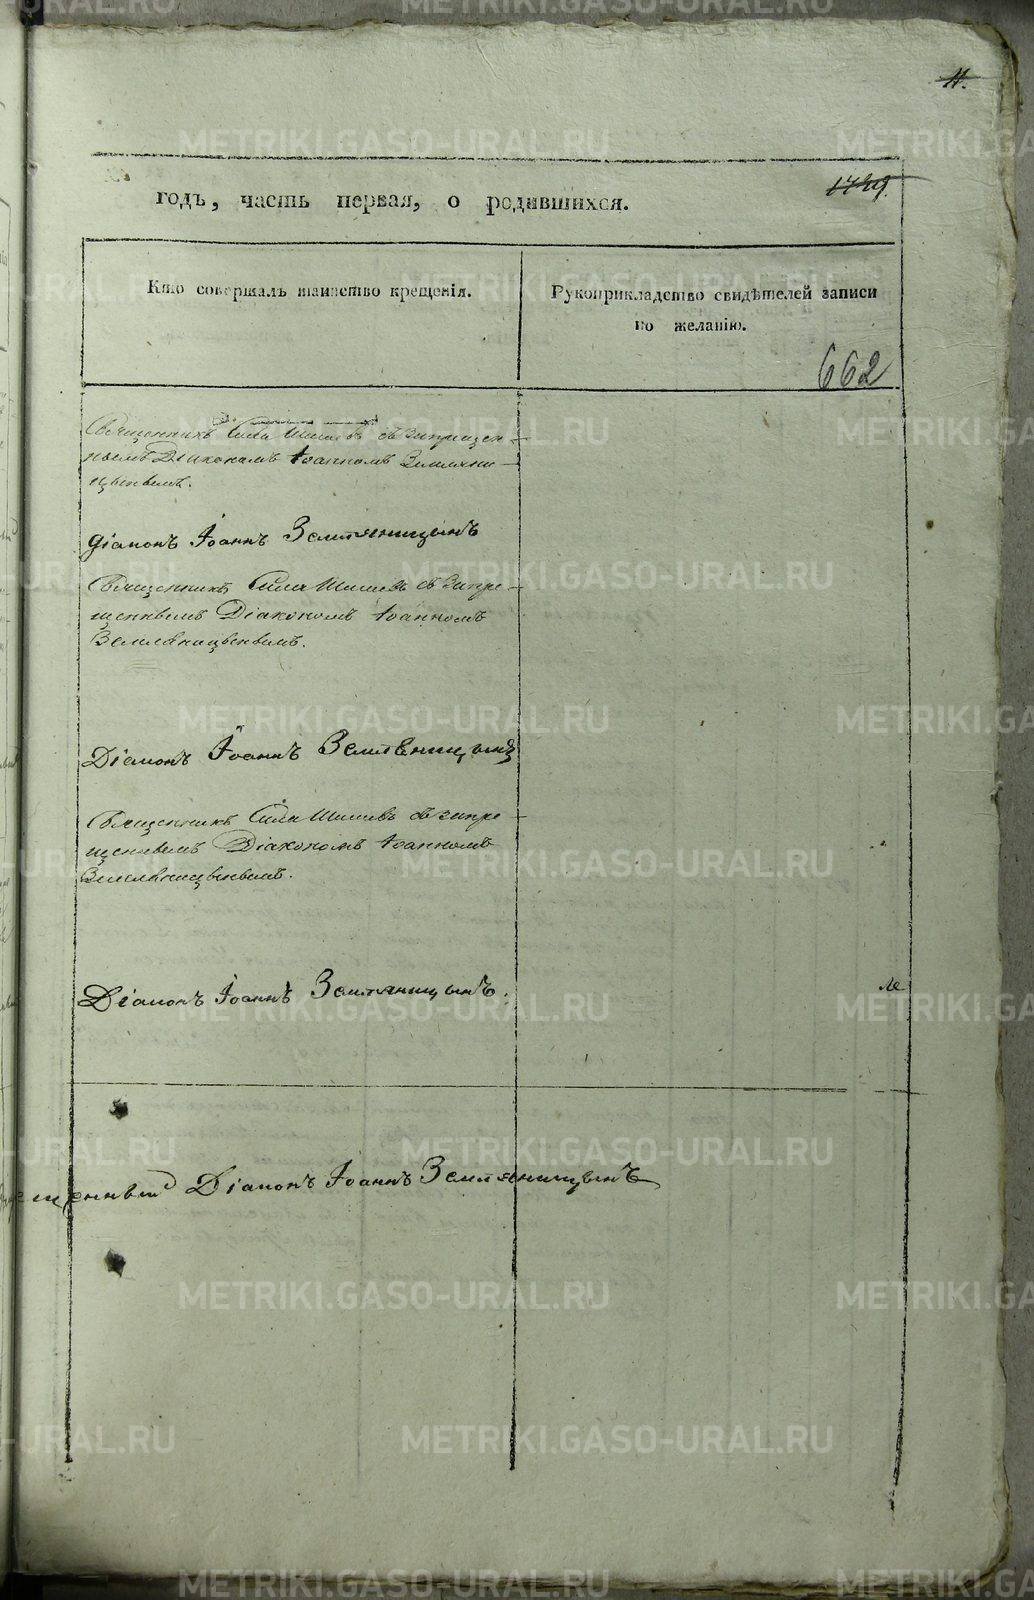 11.
годъ, часть первая, о родившихся.
1729.
Кто совершалъ таинство крещенія.
Рукоприкладство свидѣтелей записи
по желанію.
662
Священникъ Сила Шишевъ съ запрещен-
нымъ Діакономъ Іоанномъ Земляни-
цынымъ.
діаконъ Іоаннъ Земляницынъ
Священникъ Сила Шишевъ съ запре-
щеннымъ Діакономъ Іоанномъ
Земляницынымъ.
Діаконъ Іоаннъ Земляницынъ
Священникъ Сила Шишевъ съ запре-
щеннымъ Діакономъ Іоанномъ
Земляницынымъ.
Діаконъ Іоаннъ Земляницынъ.
Діаконъ Іоаннъ Земляницынъ
METRIKI.GASO-URAL.RU